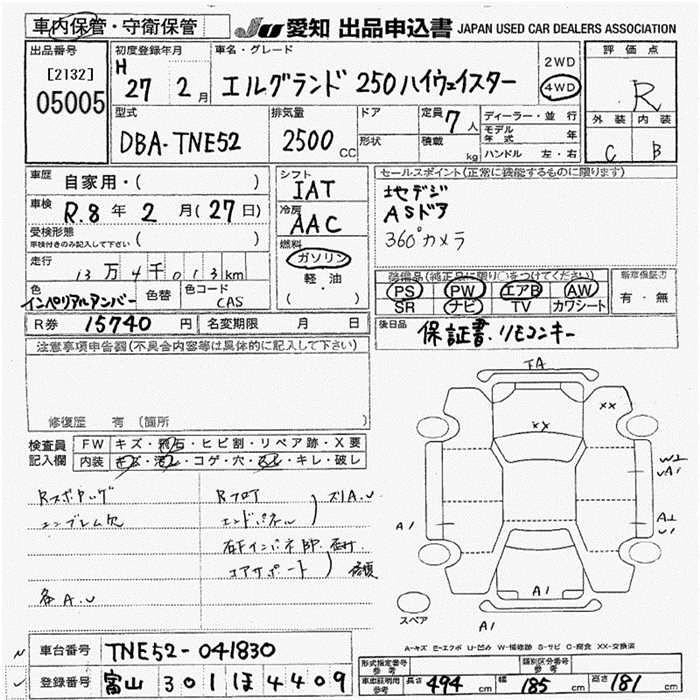 車内保管・守衛保管
JU 愛知 出品申込書 JAPAN USED CAR DEALERS ASSOCIATION
出品番号
[2132]
05005
初度登録年月
H 27 2 月
車名・グレード
エルグランド 250ハイウェイスター
2WD
4WD
評価点
R
外装 内装
C B
型式
DBA-TNE52
排気量
2500 CC
ドア
形状
定員 7 人
積載 kg
ディーラー・並行
モデル年式 年
ハンドル 左・右
車歴 自家用・( )
車検 R.8 年 2 月(27日)
受検形態
車検付きのみ記入して下さい ( )
走行 13万4千013km
色 インペリアルアンバー
色替
色コード CAS
シフト
IAT
冷房
AAC
燃料
ガソリン
軽・油
( ・ )
セールスポイント(正常に機能するものに限ります)
地デジ
ASドア
360°カメラ
装備品(純正品に限り○をつけてください)
PS PW エアB AW
SR ナビ TV カワシート
新車保証書
有・無
R券 15740 円
名変期限 月 日
後日品 保証書.リモコンキー
注意事項申告欄(不具合内容等は具体的に記入して下さい)
修復歴 有 (箇所
検査員
記入欄
FW キズ・飛石・ヒビ割・リペア跡・X要
内装 キズ・汚レ・コゲ・穴・スレ・キレ・破レ
エンブレム欠
Rフロア
エンドパネル
コアサポート
修復
各A.U
TA
XX
XX
W2
A1
A1
A1
スペア
A1
A-キズ E-エクボ U-凹み W-補修跡 S-サビ C-腐食 XX-交換済
車台番号 TNE52-041830
登録番号 富山 301 ほ 4409
形式指定番号
参考
類別区分番号
参考
車庫証明用
参考
長さ 494 cm
幅 185 cm
高さ 181 cm